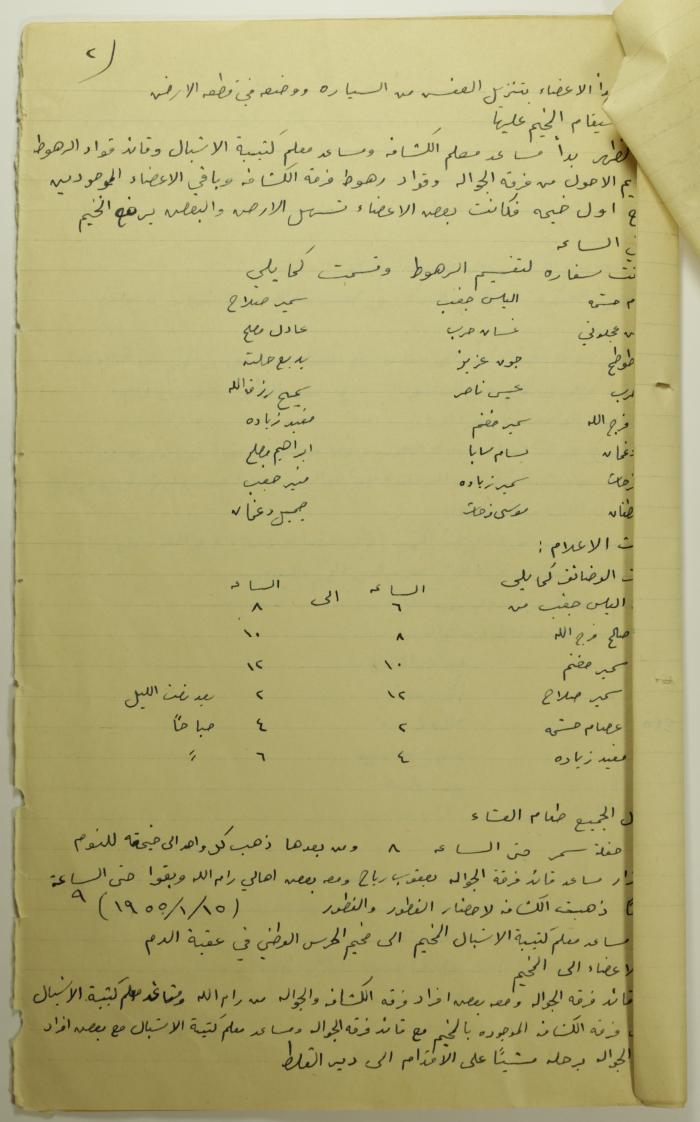 (٢
دأ الاعضاء بتنزيل العفش من السياره ووضعه في قطعه الارض
سيقام المخيم عليها
لظهر بدأ مساعد معلم الكشافه ومساعد معلم كتيبة الاشبال وقائد قواد الرهوط
يم الاصول من فرقة الجواله وقواد رهوط فرقة الكشافه وباقي الاعضاء الموجودين
اول خيمه فكانت بعض الاعضاء تسهل الارض والبعض يرفع المخيم
الساعه
نت سفاره لتقسيم الرهوط وقسمت كما يلي
م حشمه الياس جغب سمير صلاح
ن عجلوني غسان حرب عادل مصلح
طوطح جون عزيز بديع حلته
حرب عيسى ناصر سميح رزق الله
فرج الله سمير مغنم مفيد زياده
دغمان بسام سابا ابراهيم مصلح
زحات سمير زياده منير جغب
طنان موسى زحات جميل دغمان
ت الاعلام :
ت الوضائف كما يلي
الياس جغب من الساعه ٦ الى الساعه ٨
صالح فرج الله ٨ ١٠
سمير مغنم ١٠ ١٢
سمير صلاح ١٢ ٢ بعد نصف الليل
عصام حشمه ٢ ٤ صباحاً
مفيد زياده ٤ ٦ "
ل الجميع طعام العشاء
حفلة سمر حتى الساعه ٨ ومن بعدها ذهب كل واحد الى خيمته للنوم
زار مساعد قائد فرقة الجواله يعقوب رباح ومعه بعض اهالي رام الله وبقوا حتى الساعة ٩
ذهبت الكشافه لاحضار الفطور والفطور (١٩٥٥/١/١٥)
مساعد معلم كتيبة الاشبال المخيم الى مخيم الحرس الوطني في عقبة الدم
لاعضاء الى المخيم
قائد فرقه الجواله ومعه بعض افراد فرقه الكشافه والجواله من رام الله ومساعد معلم كتيبة الاشبال
فرقة الكشافه الموجوده بالمخيم مع قائد فرقه الجواله ومساعد معلم كتيبة الاشبال مع بعض افراد
الجواله برحله مشيًا على الأقدام الى دير القلط